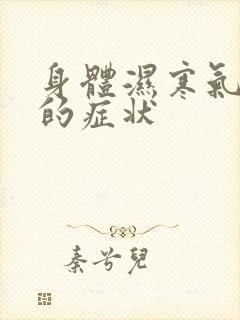 身體濕寒氣
的症状
秦兮兒